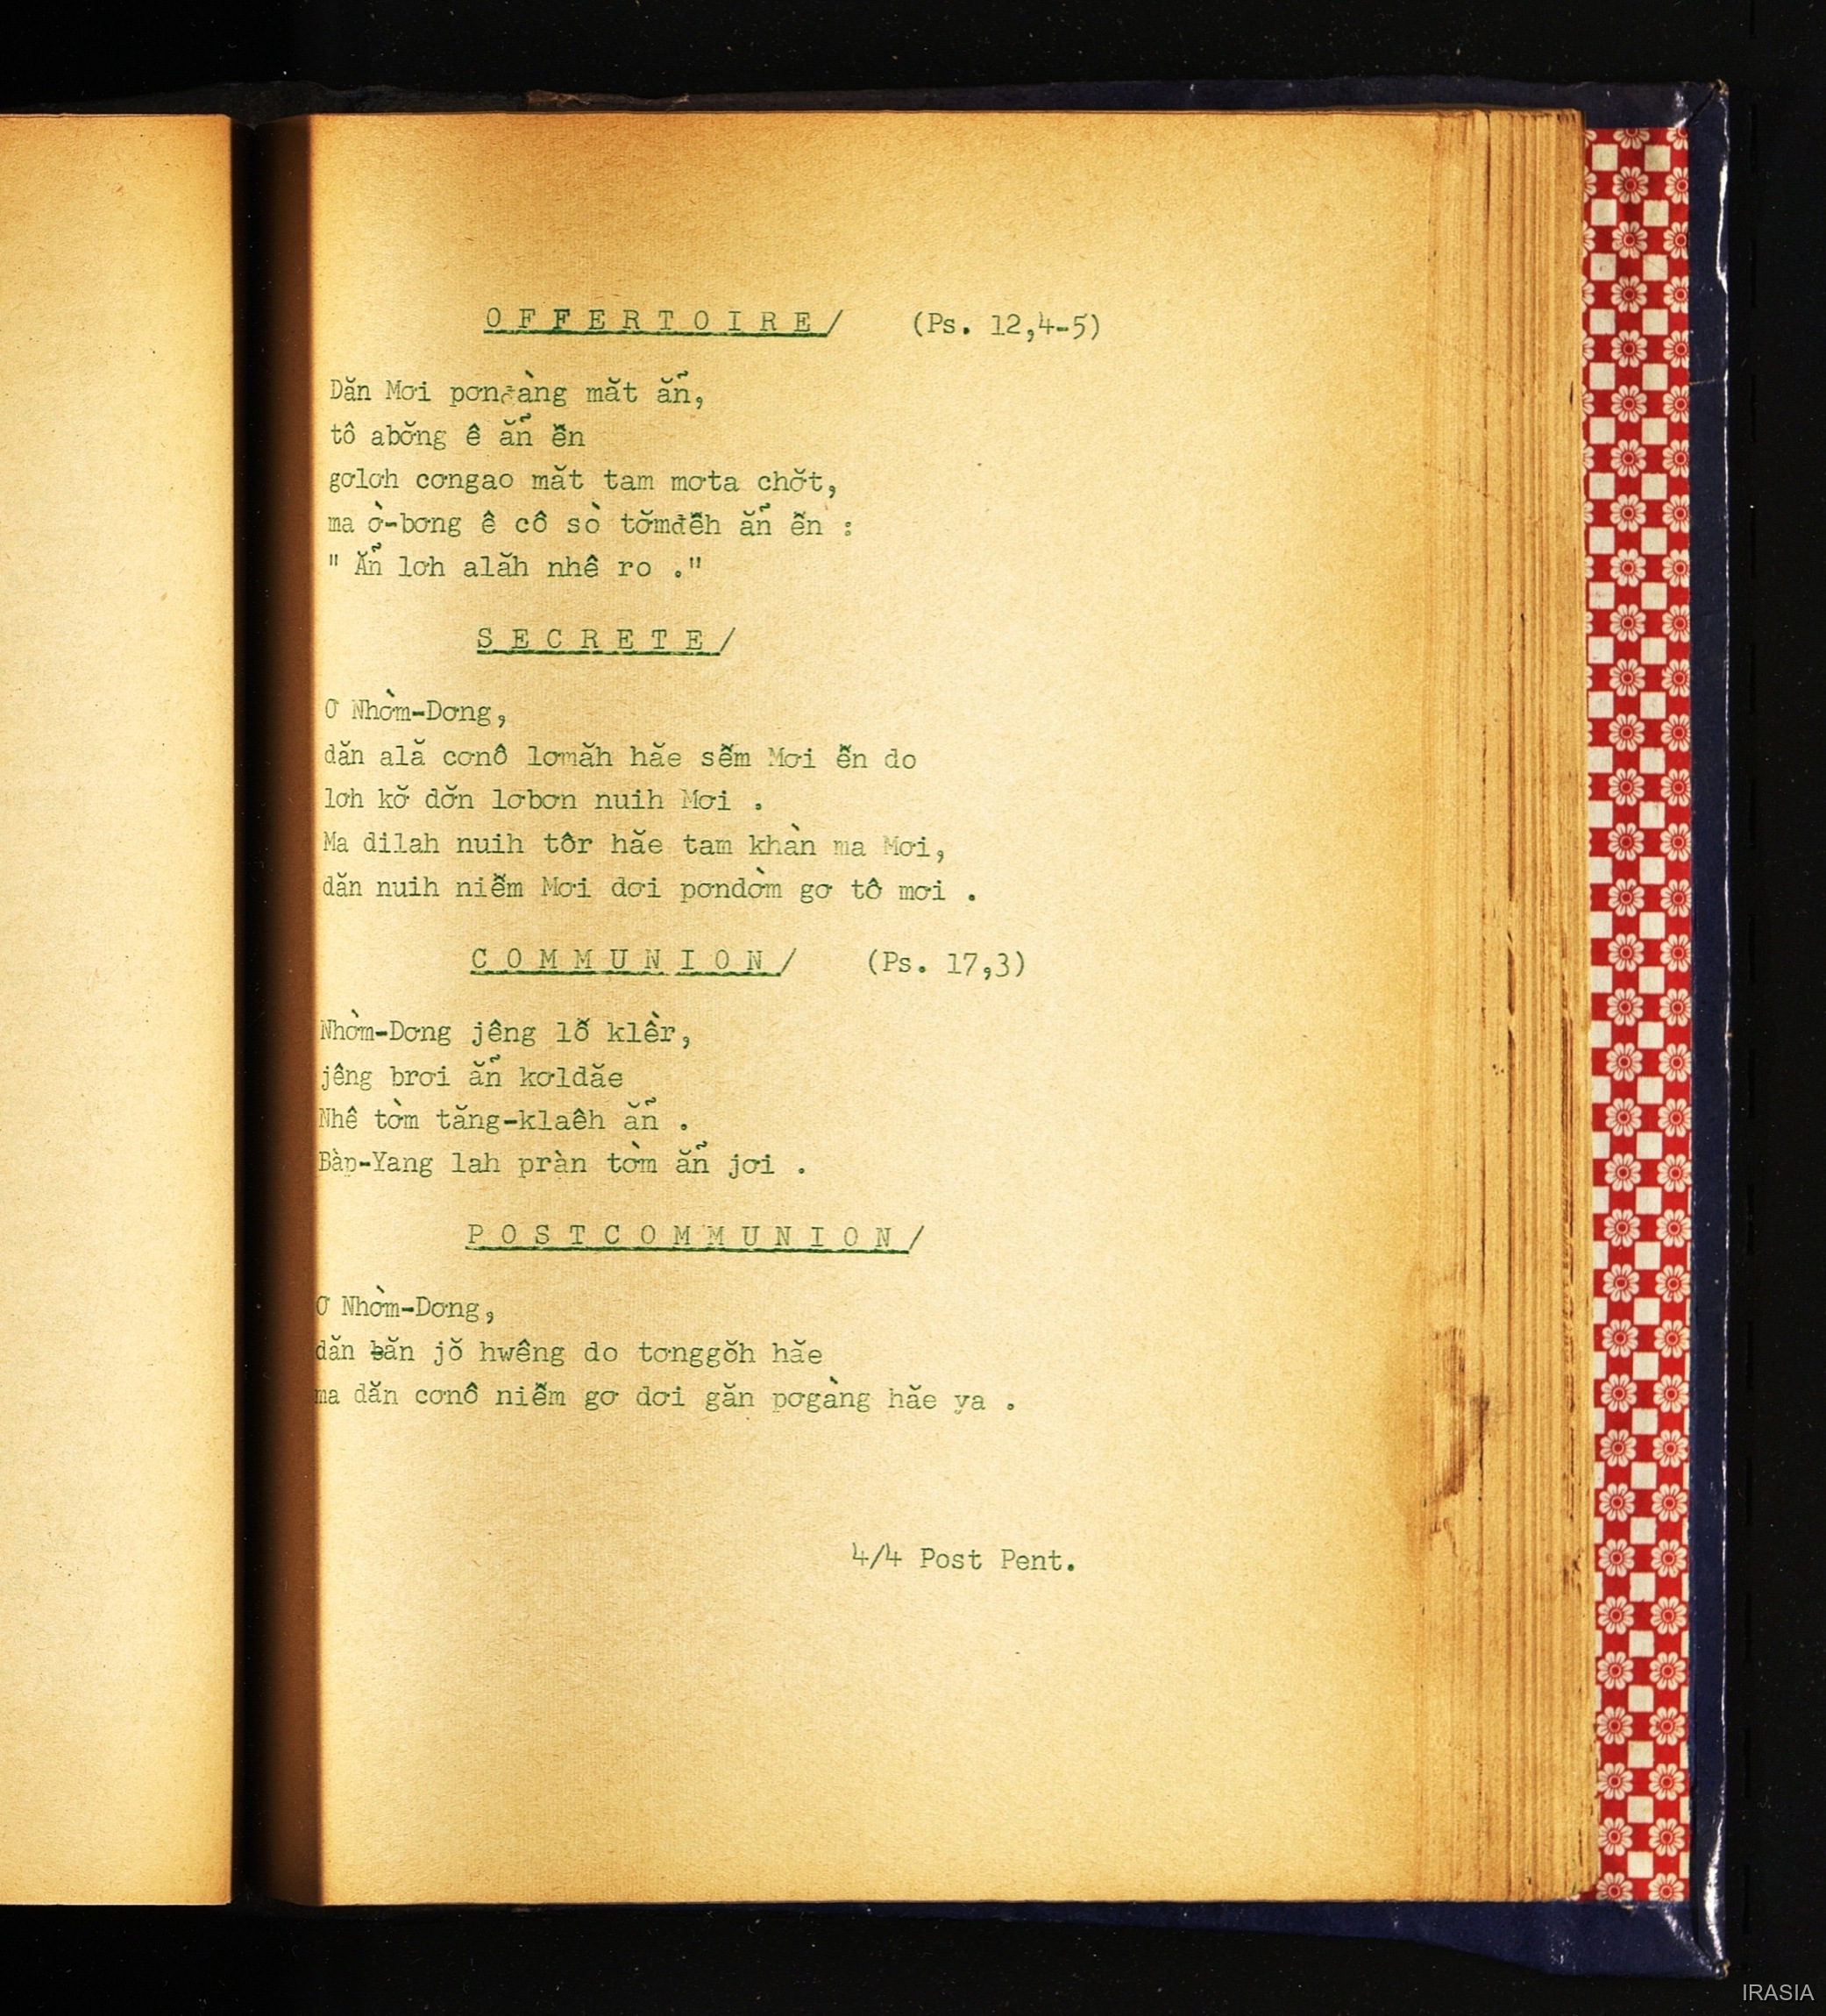 O F F E R T O I R E /    (Ps. 12,4-5)
Dăn Mơi măt ăñ,
tô abơ̆ng ê ăñ ên̆
gơlơh cơngao măt tam mơta chơ̆t,
ma ờ-bơng ê cô sò tơ̆mđêh̆ ăñ ên̆ :
" Ăñ lơh alăh nhê ro ."
S E C R E T E /
Ơ Nhờm-Dơng,
dăn ală cơnô lơmăh hăe sê̆m Mơi ê̆n do
lơh kơ̆ dơ̆n lơbơn nuih Mơi .
Ma dilah nuih tôr hăe tam khàn ma Mơi,
dăn nuih niê̆m Mơi dơi pơndờm gơ tô mơi .
C O M M U N I O N /    (Ps. 17,3)
Nhờm-Dơng jêng lô̆ klềr,
jêng brơi ăñ kơldăe
Nhê tờm tăng-klaêh ăñ .
Bàp-Yang lah pràn tờm ăñ jơi .
P O S T C O M M U N I O N /
Ơ Nhờm-Dơng,
dăn băn jŏ hwêng do tơnggŏh hăe
ma dăn cơnô niê̆m gơ dơi găn pơgàng hăe ya .
4/4 Post Pent.
IRASIA